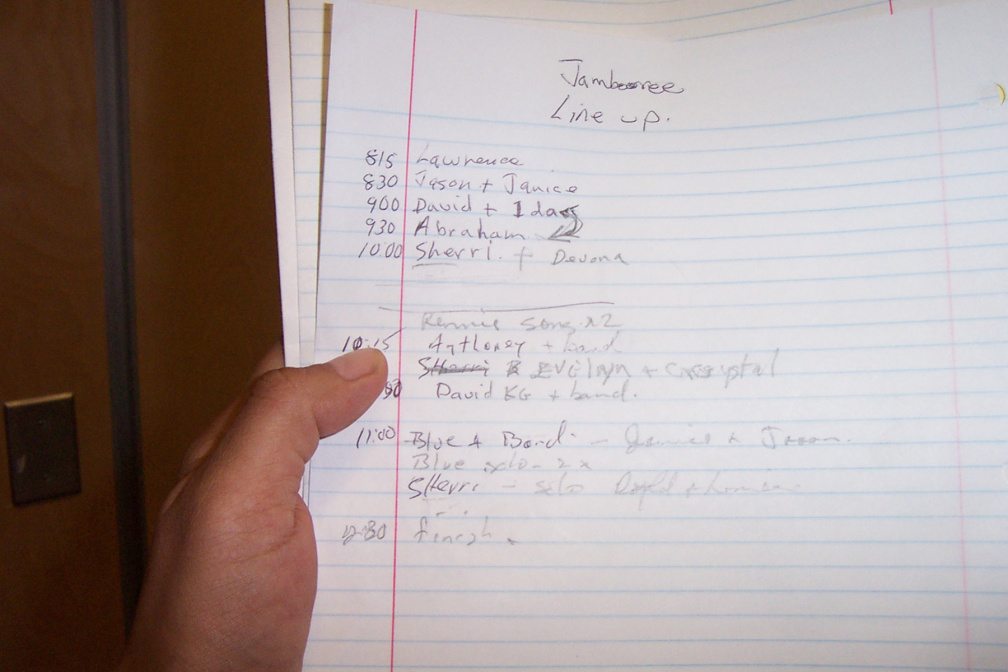 Jamboree
Line up.
815 Lawrence
830 Jason + Janice
900 David + 1 day
930 Abraham
10:00 Sherri. + Devona
Rennie Song x2
10:15 Anthoney + band
Sherri Evelyn + Crystal
30 David KG + band.
11:00 Blue + Band - Janice + Jason.
Blue solo - 2x
SHerri - solo
12:30 finish.